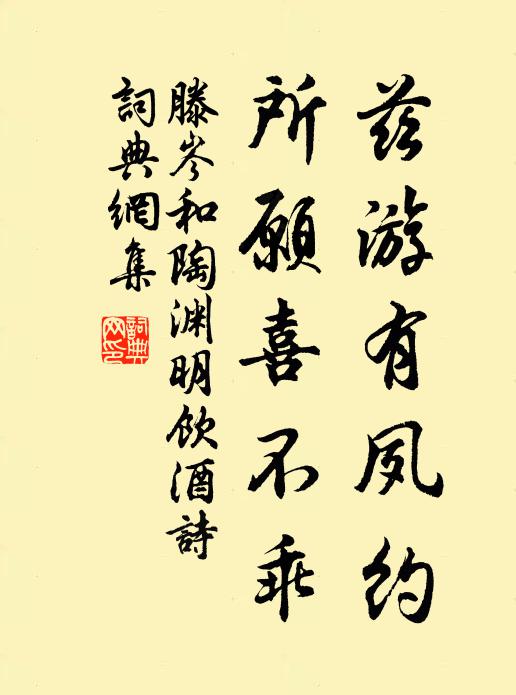 兹游有夙约
所愿喜不乖
滕岑和陶渊明饮酒詩
詞典網集
詞典网印